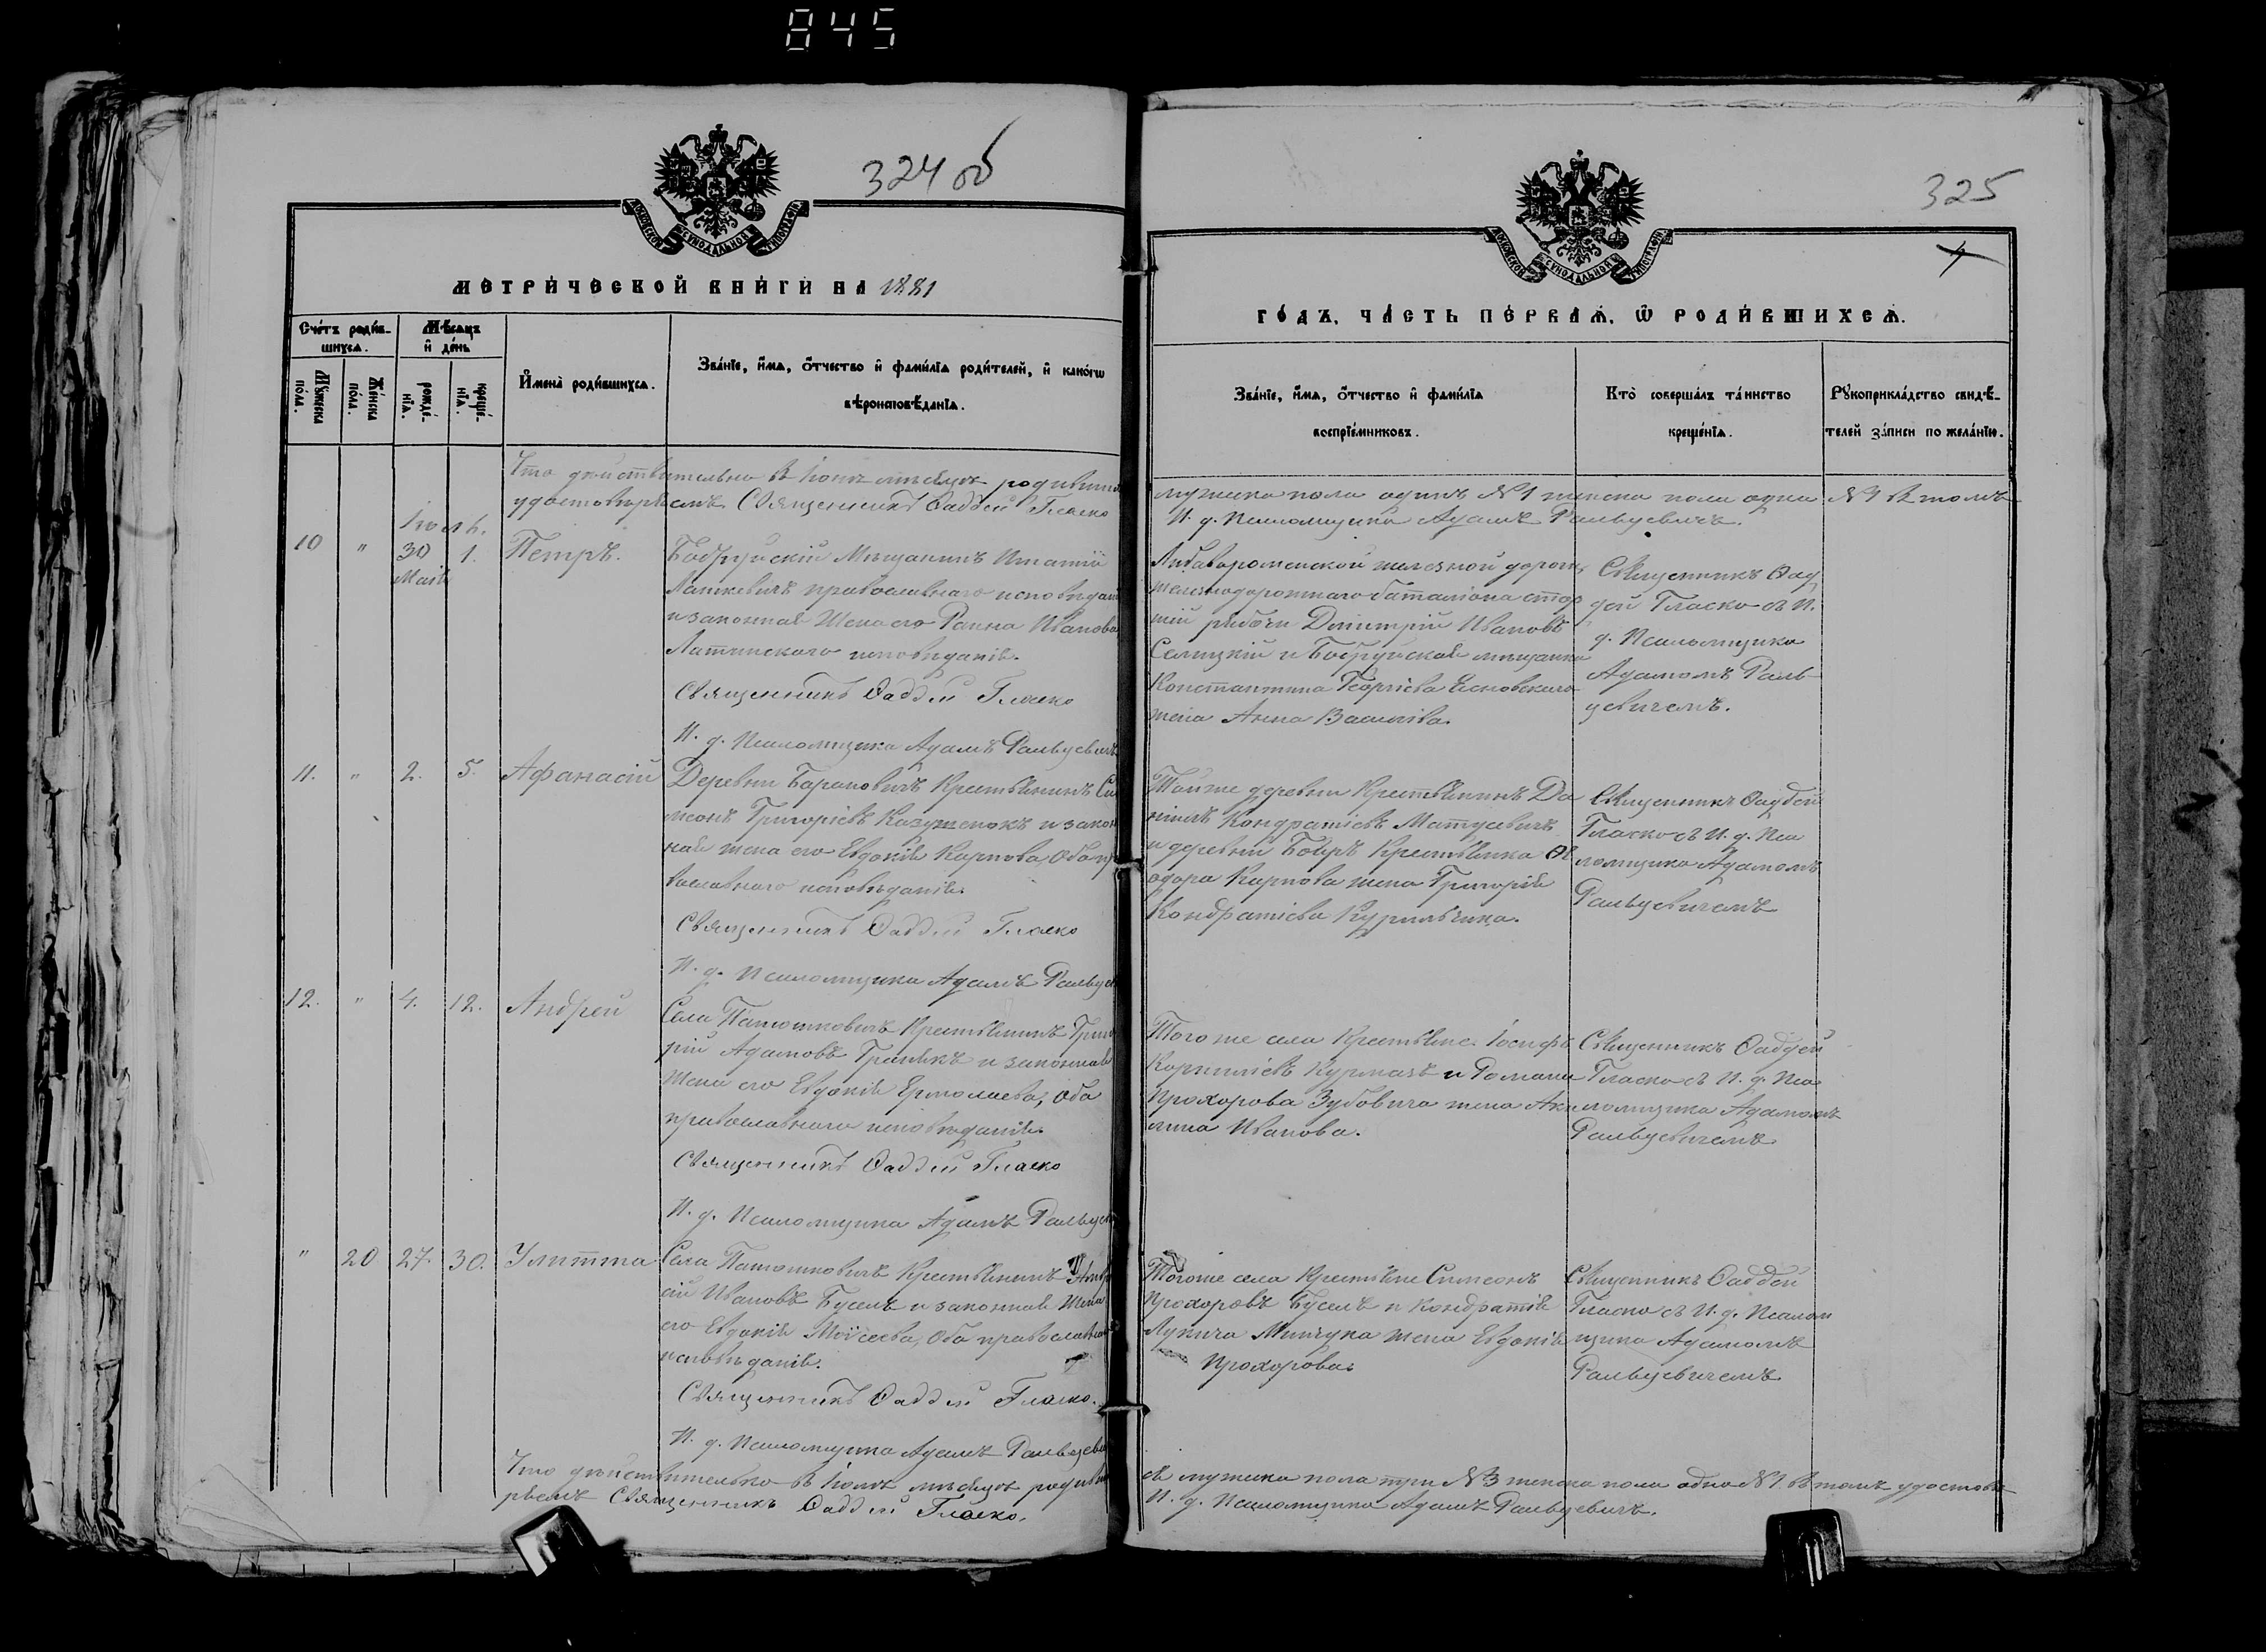 845
324 об
МОСКОВСКОЙ СѴНОДАЛЬНОЙ ТИПОГРАФІИ
МЕТРИЧЕСКОЙ КНИГИ НА 1881
Счетъ родив-
шихся.
Мѣсяцъ
и день
Мужеска
пола.
Женска
пола.
рожде-
нія.
креще-
нія.
Имена родившихся.
Званіе, имя, отчество и фамилія родителей, и какогѡ
вѣроисповѣданія.
Что дѣйствительно въ Іюнѣ мѣсяцѣ родивших
удостовѣряемъ Священникъ Ѳаддей Гласко
Іюль.
10 " 30 1. Петръ.
Маія
Бобруйскій Мѣщанинъ Игнатій
Лашкевичъ православнаго исповѣдані
и законная Жена его Иванова
Латинскаго исповѣданія.
Священникъ Ѳаддей Гласко
И. д. Псаломщика Адамъ Ральцевичъ
11. " 2. 5. Афанасій
Деревни Барановичъ Крестьянинъ Си
меонъ Григоріевъ и закон
ная жена его Евдокія Карпова, Оба пр
вославнаго исповѣданія.
Священникъ Ѳаддей Гласко
И. д. Псаломщика Адамъ Ральцев
12. " 4. 12. Андрей
Села Крестьянинъ Григо
рій Адамовъ и законная
Жена его Евдокія Ермолаева, Оба
православнаго исповѣданія.
Священникъ Ѳаддей Гласко
И. д. Псаломщика Адамъ Ральцев
" 20 27. 30. Улитта
Села Крестьянинъ
Ивановъ Буселъ и законная Жена
его Евдокія Моѵсеева, Оба православнаго
исповѣданія.
Священникъ Ѳаддей Гласко.
И. д. Псаломщика Адамъ Ральцевич
Что дѣйствительно въ Іюлѣ мѣсяцѣ родивши
ряемъ Священникъ Ѳаддей Гласко.
325
МОСКОВСКОЙ СѴНОДАЛЬНОЙ ТИПОГРАФІИ
ГОДЪ, ЧАСТЬ ПЕРВАЯ, Ѡ РОДИВШИХСЯ.
Званіе, имя, отчество и фамилія
воспріемниковъ.
Кто совершалъ таинство
крещенія.
Рукоприкладство свидѣ-
телей записи по желанію.
мужеска пола одинъ №1 женска пола одна №1 въ томъ
И. д. Псаломщика Адамъ Ральцевичъ.
Либавороменской желѣзной дороги
желѣзнодорожнаго баталіона стар
шій рабочій Димитрій Ивановъ
Селицкій и Бобруйская мѣщанка
Константина Георгіева
жена Анна Васильева.
Священникъ Ѳад
дей Гласко съ И.
д. Псаломщика
Адамомъ Раль
цевичемъ.
Тойже деревни Крестьянинъ Да
ніилъ Кондратіевъ Матусевичъ
и деревни Крестьянка Ѳе
одора Карпова жена Григорія
Кондратіева Курильчика.
Священникъ Ѳаддей
Гласко съ И. д. Пса
ломщика Адамомъ
Ральцевичемъ
Того же села Крестьяне: Іосифъ
Корниліевъ и Романа
Прохорова Зубовича жена Аки
лина Иванова.
Священникъ Ѳаддей
Гласко съ И. д. Пса
ломщика Адамомъ
Ральцевичемъ
Тогоже села Крестьяне Симеонъ
Прохоровъ Буселъ и Кондратія
Лукича Минчука жена Евдокія
Прохорова.
Священникъ Ѳаддей
Гласко съ И. д. Псалом
щика Адамомъ
Ральцевичемъ
ся мужеска пола три №3 женска пола одна №1. въ томъ удостовѣ
И. д. Псаломщика Адамъ Ральцевичъ.